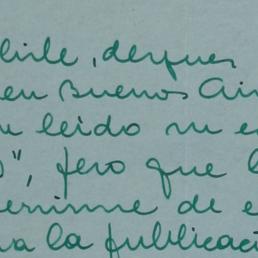 hile, despues
en Buenos Air
u leido su e
", pero que l
erirme de e
a la publicaci